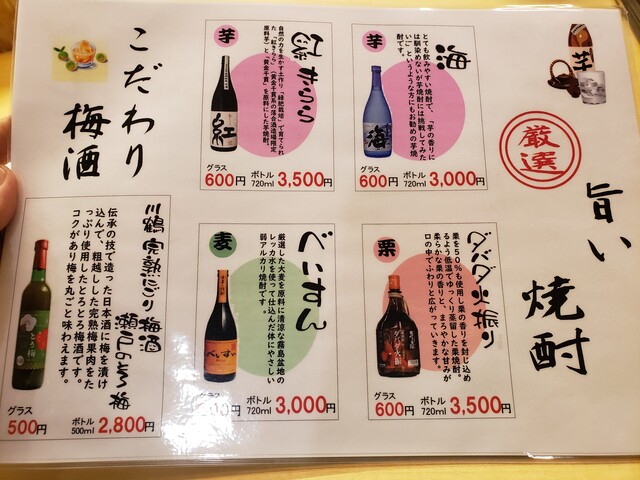 旨い
焼酎
厳選
芋
海
とても飲みやすい焼酎で、「芋の香りに
は馴染めないが芋焼酎には挑戦してみた
い」というような方にもお勧めの芋焼
酎です。
海
グラス
600円
ボトル
720ml
3,000円
芋
紅きらら
自然の力を生かす土作り「緑肥栽培」で育てられ
た「紅きらら」(黄金千貫系の落合酒造場限定
原料芋)と「黄金千貫」を原料にした芋焼酎。
紅
グラス
600円
ボトル
720ml
3,500円
栗
ダバダ火振り
栗を50%も使用し栗の香りを封じ込め
るよう低温でゆっくり蒸留した栗焼酎。
柔らかな栗の香りと、まろやかな甘みが
口の中でふわりと広がっていきます。
グラス
600円
ボトル
720ml
3,500円
麦
べいすん
厳選した大麦を原料に清涼な霧島盆地の
レッカ水を使って仕込んだ体にやさしい
弱アルカリ焼酎です。
べいすん
グラス
ボトル
720ml
3,000円
こだわり
梅酒
川鶴 完熟にごり梅酒
瀬戸のとろ梅
伝承の技で造った日本酒に梅を漬け
込んで、粗越しした完熟梅果肉をた
っぷり使用したとろとろ梅酒です。
コクがあり梅を丸ごと味わえます。
とろ梅
グラス
500円
ボトル
500ml
2,800円